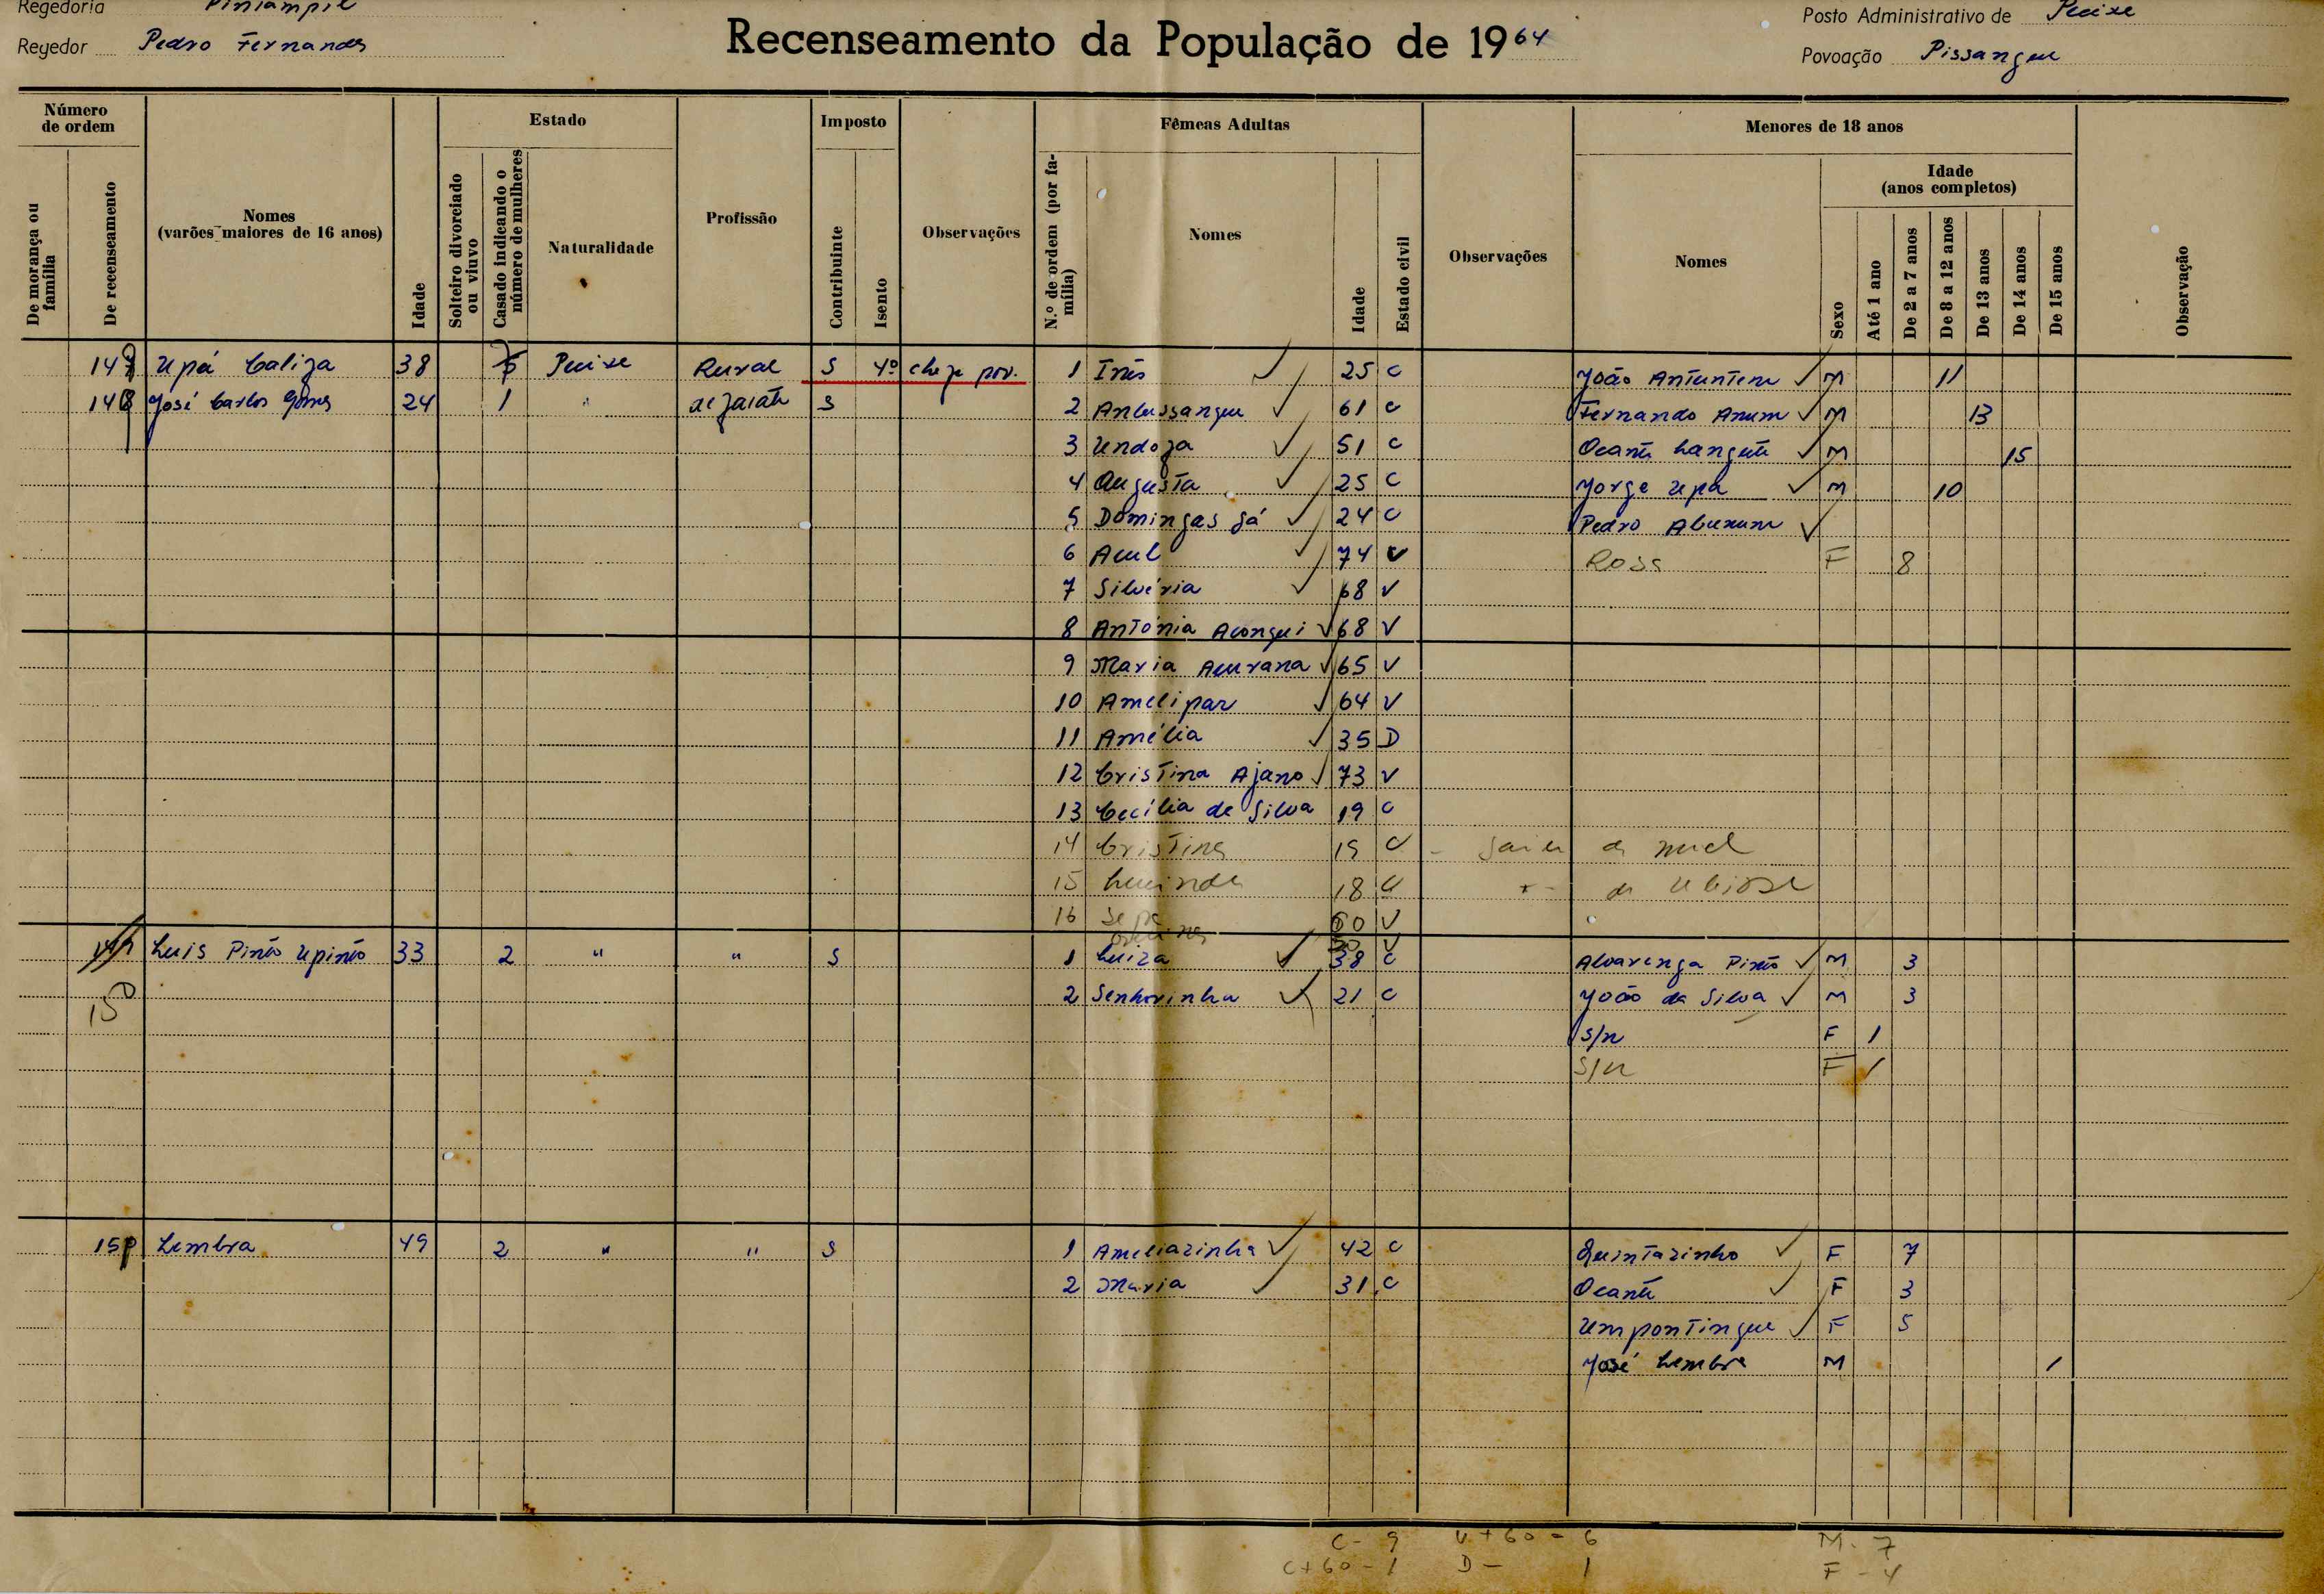 Regedoria Piniampil
Regedor Pedro Fernandes
Recenseamento da População de 1964
Posto Administrativo de Pecixe
Povoação Pissangue
Número de ordem
De morança ou família
De recenseamento
Nomes (varões maiores de 16 anos)
Idade
Estado
Solteiro divorciado ou viuvo
Casado indicando o número de mulheres
Naturalidade
Profissão
Imposto
Contribuinte
Isento
Observações
Fêmeas Adultas
N.º de ordem (por família)
Nomes
Idade
Estado civil
Observações
Menores de 18 anos
Nomes
Sexo
Idade (anos completos)
Até 1 ano
De 2 a 7 anos
De 8 a 12 anos
De 13 anos
De 14 anos
De 15 anos
Observação
Upá Caliza 38 Pecixe Rural S 4º chefe pov. 1 Inês 25 C João M 11
José Carlos Gomes 24 1 " alfaiate S 2 Anbussangue 61 C Fernando Anum M 13
3 Undoza 51 C Ocante M 15
4 Augusta 25 C Jorge Upa M 10
5 Domingas Sá 24 C Pedro
6 Acul 74 V Rosa F 8
7 Silvéria 68 V
8 Antónia Acongui 68 V
9 Maria Acurana 65 V
10 Amelipar 64 V
11 Amélia 35 D
12 Cristina Ajano 73 V
13 Cecília da Silva 19 C
14 Cristina 19 C -
15 Lucinda 18 C
16 60 V
150 Luis Pinto Upinto 33 2 " " S 1 Luiza 38 C Alvarenga Pinto M 3
2 Senhorinha 21 C João da Silva M 3
S/n F 1
S/n F 1
Lembra 49 2 " " S 1 Ameliazinha 42 C Quintazinho F 7
2 Maria 31 C Ocante F 3
Umpontingue F 5
José Lembra M 1
C - 9 V + 60 = 6 M - 7
C + 60 - 1 D - 1 F - 4